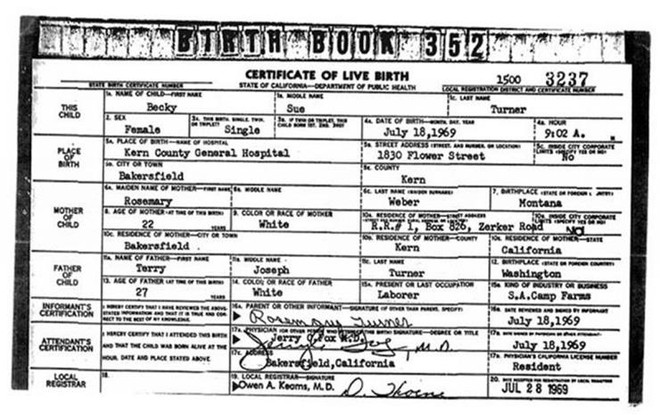 BIRTH BOOK 352
CERTIFICATE OF LIVE BIRTH
1500 3237
STATE BIRTH CERTIFICATE NUMBER
STATE OF CALIFORNIA—DEPARTMENT OF PUBLIC HEALTH
LOCAL REGISTRATION DISTRICT AND CERTIFICATE NUMBER
THIS CHILD
1A. NAME OF CHILD—FIRST NAME
Becky
1B. MIDDLE NAME
Sue
1C. LAST NAME
Turner
2. SEX
Female
3A. THIS BIRTH, SINGLE, TWIN, OR TRIPLET?
Single
3B. IF TWIN OR TRIPLET, THIS CHILD BORN 1ST, 2ND, 3RD?
4A. DATE OF BIRTH—MONTH, DAY, YEAR
July 18,1969
4B. HOUR
9:02 A. M
PLACE OF BIRTH
5A. PLACE OF BIRTH—NAME OF HOSPITAL
Kern County General Hospital
5B. STREET ADDRESS (STREET, AND NUMBER, OR LOCATION)
1830 Flower Street
5C. INSIDE CITY CORPORATE LIMITS (SPECIFY YES OR NO)
No
5D. CITY OR TOWN
Bakersfield
5E. COUNTY
Kern
MOTHER OF CHILD
6A. MAIDEN NAME OF MOTHER—FIRST NAME
Rosemary
6B. MIDDLE NAME
6C. LAST NAME (MAIDEN SURNAME)
Weber
7. BIRTHPLACE (STATE OR FOREIGN
Montana
8. AGE OF MOTHER (AT TIME OF THIS BIRTH)
22 YEARS
9. COLOR OR RACE OF MOTHER
White
10A. RESIDENCE OF MOTHER—STREET ADDRESS
R.R.# 1, Box 826, Zerker Road
10B. INSIDE CITY CORPORATE LIMITS (SPECIFY YES OR NO)
NO
10C. RESIDENCE OF MOTHER—CITY OR TOWN
Bakersfield
10D. RESIDENCE OF MOTHER—COUNTY
Kern
10E. RESIDENCE OF MOTHER—STATE
California
FATHER OF CHILD
11A. NAME OF FATHER—FIRST NAME
Terry
11B. MIDDLE NAME
Joseph
11C. LAST NAME
Turner
12. BIRTHPLACE (STATE OR FOREIGN COUNTRY)
Washington
13. AGE OF FATHER (AT TIME OF THIS BIRTH)
27 YEARS
14. COLOR OR RACE OF FATHER
White
15A. PRESENT OR LAST OCCUPATION
Laborer
15B. KIND OF INDUSTRY OR BUSINESS
S.A.Camp Farms
INFORMANT'S CERTIFICATION
I HEREBY CERTIFY THAT I HAVE REVIEWED THE ABOVE STATED INFORMATION AND THAT IT IS TRUE AND CORRECT TO THE BEST OF MY KNOWLEDGE.
16A. PARENT OR OTHER INFORMANT—SIGNATURE (IF OTHER THAN PARENT, SPECIFY)
Rosemary Turner
16B. DATE REVIEWED AND SIGNED BY INFORMANT
July 18,1969
ATTENDANT'S CERTIFICATION
I HEREBY CERTIFY THAT I ATTENDED THIS BIRTH AND THAT THE CHILD WAS BORN ALIVE AT THE HOUR, DATE AND PLACE STATED ABOVE.
17A. PHYSICIAN (OR OTHER BIRTH) SIGNATURE—DEGREE OR TITLE
Jerry Fox M.D.
M.D.
July 18,1969
17C. ADDRESS
Bakersfield,California
17D. PHYSICIAN'S CALIFORNIA LICENSE NUMBER
Resident
LOCAL REGISTRAR
18.
19. LOCAL REGISTRAR—SIGNATURE
Owen A. Kearns, M.D.
20. DATE ACCEPTED FOR REGISTRATION BY LOCAL REGISTRAR
JUL 28 1969